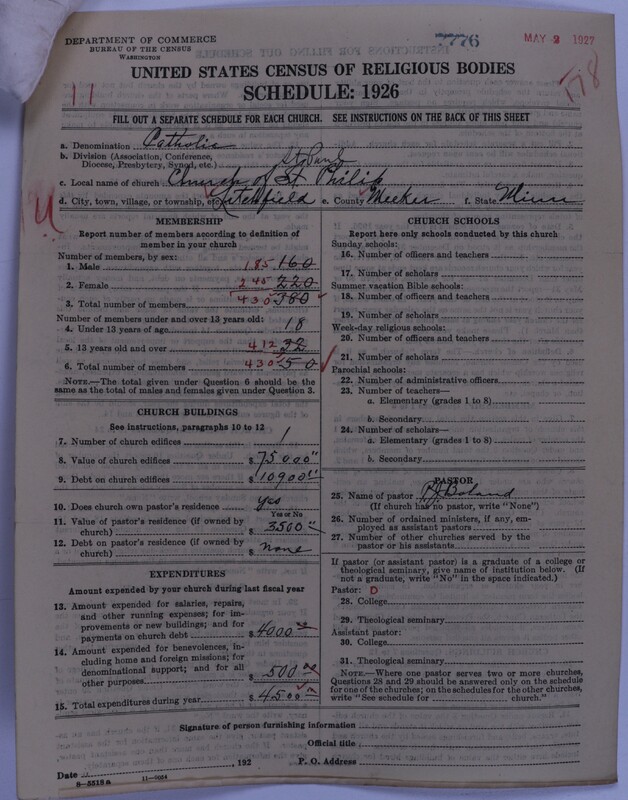 DEPARTMENT OF COMMERCE
BUREAU OF THE CENSUS
WASHINGTON
7776
MAY 2 1927
178
11
UNITED STATES CENSUS OF RELIGIOUS BODIES
SCHEDULE: 1926
FILL OUT A SEPARATE SCHEDULE FOR EACH CHURCH. SEE INSTRUCTIONS ON THE BACK OF THIS SHEET
a. Denomination Catholic
b. Division (Association, Conference,
Diocese, Presbytery, Synod, etc.) St. Paul
c. Local name of church Church of St Philip
d. City, town, village, or township, etc. Litchfield e. County Meeker f. State Minn
MEMBERSHIP
Report number of members according to definition of
member in your church
Number of members, by sex:
1. Male 185 160
2. Female 245 220
3. Total number of members 430 380
Number of members under and over 13 years old:
4. Under 13 years of age 18
5. 13 years old and over 412 32
6. Total number of members 430 50
NOTE.—The total given under Question 6 should be
same as the total of males and females given under Question 3.
CHURCH BUILDINGS
See instructions, paragraphs 10 to 12
7. Number of church edifices 1
8. Value of church edifices $ 75000
9. Debt on church edifices $ 10900
10. Does church own pastor's residence? yes
Yes or No
11. Value of pastor's residence (if owned by
church) $ 3500
12. Debt on pastor's residence (if owned by
church) $ none
EXPENDITURES
Amount expended by your church during last fiscal year
13. Amount expended for salaries, repairs,
and other running expenses; for im-
provements or new buildings; and for
payments on church debt $ 4000
14. Amount expended for benevolences, in-
cluding home and foreign missions; for
denominational support; and for all
other purposes $ 500
15. Total expenditures during year $ 4500
CHURCH SCHOOLS
Report here only schools conducted by this church
Sunday schools:
16. Number of officers and teachers
17. Number of scholars
Summer vacation Bible schools:
18. Number of officers and teachers
19. Number of scholars
Week-day religious schools:
20. Number of officers and teachers
21. Number of scholars
Parochial schools:
22. Number of administrative officers
23. Number of teachers—
a. Elementary (grades 1 to 8)
b. Secondary
24. Number of scholars—
a. Elementary (grades 1 to 8)
b. Secondary
PASTOR
25. Name of pastor Boland
(If church has no pastor, write "None")
26. Number of ordained ministers, if any, em-
ployed as assistant pastors
27. Number of other churches served by the
pastor or his assistants
If pastor (or assistant pastor) is a graduate of a college or
theological seminary, give name of institution below. (If
not a graduate, write "No" in the space indicated.)
Pastor: D
28. College
29. Theological seminary
Assistant pastor:
30. College
31. Theological seminary
NOTE.—Where one pastor serves two or more churches,
Questions 28 and 29 should be answered only on the schedule
for one of the churches; on the schedules for the other churches,
write "See schedule for church."
Signature of person furnishing information
Official title
Date , 192 P. O. Address
8-5518a 11-9064